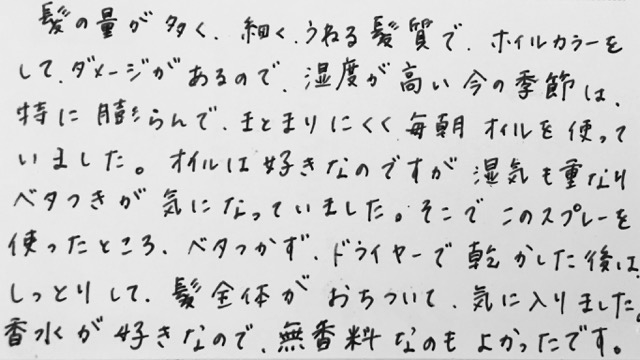 髪の量が多く、細く、うねる髪質で、ホイルカラーを
して、ダメージがあるので、湿度が高い今の季節は、
特に膨らんで、まとまりにくく毎朝オイルを使って
いました。オイルは好きなのですが湿気も重なり
ベタつきが気になっていました。そこでこのスプレーを
使ったところ、ベタつかず、ドライヤーで乾かした後は、
しっとりして、髪全体がおちついて、気に入りました。
香水が好きなので、無香料なのもよかったです。